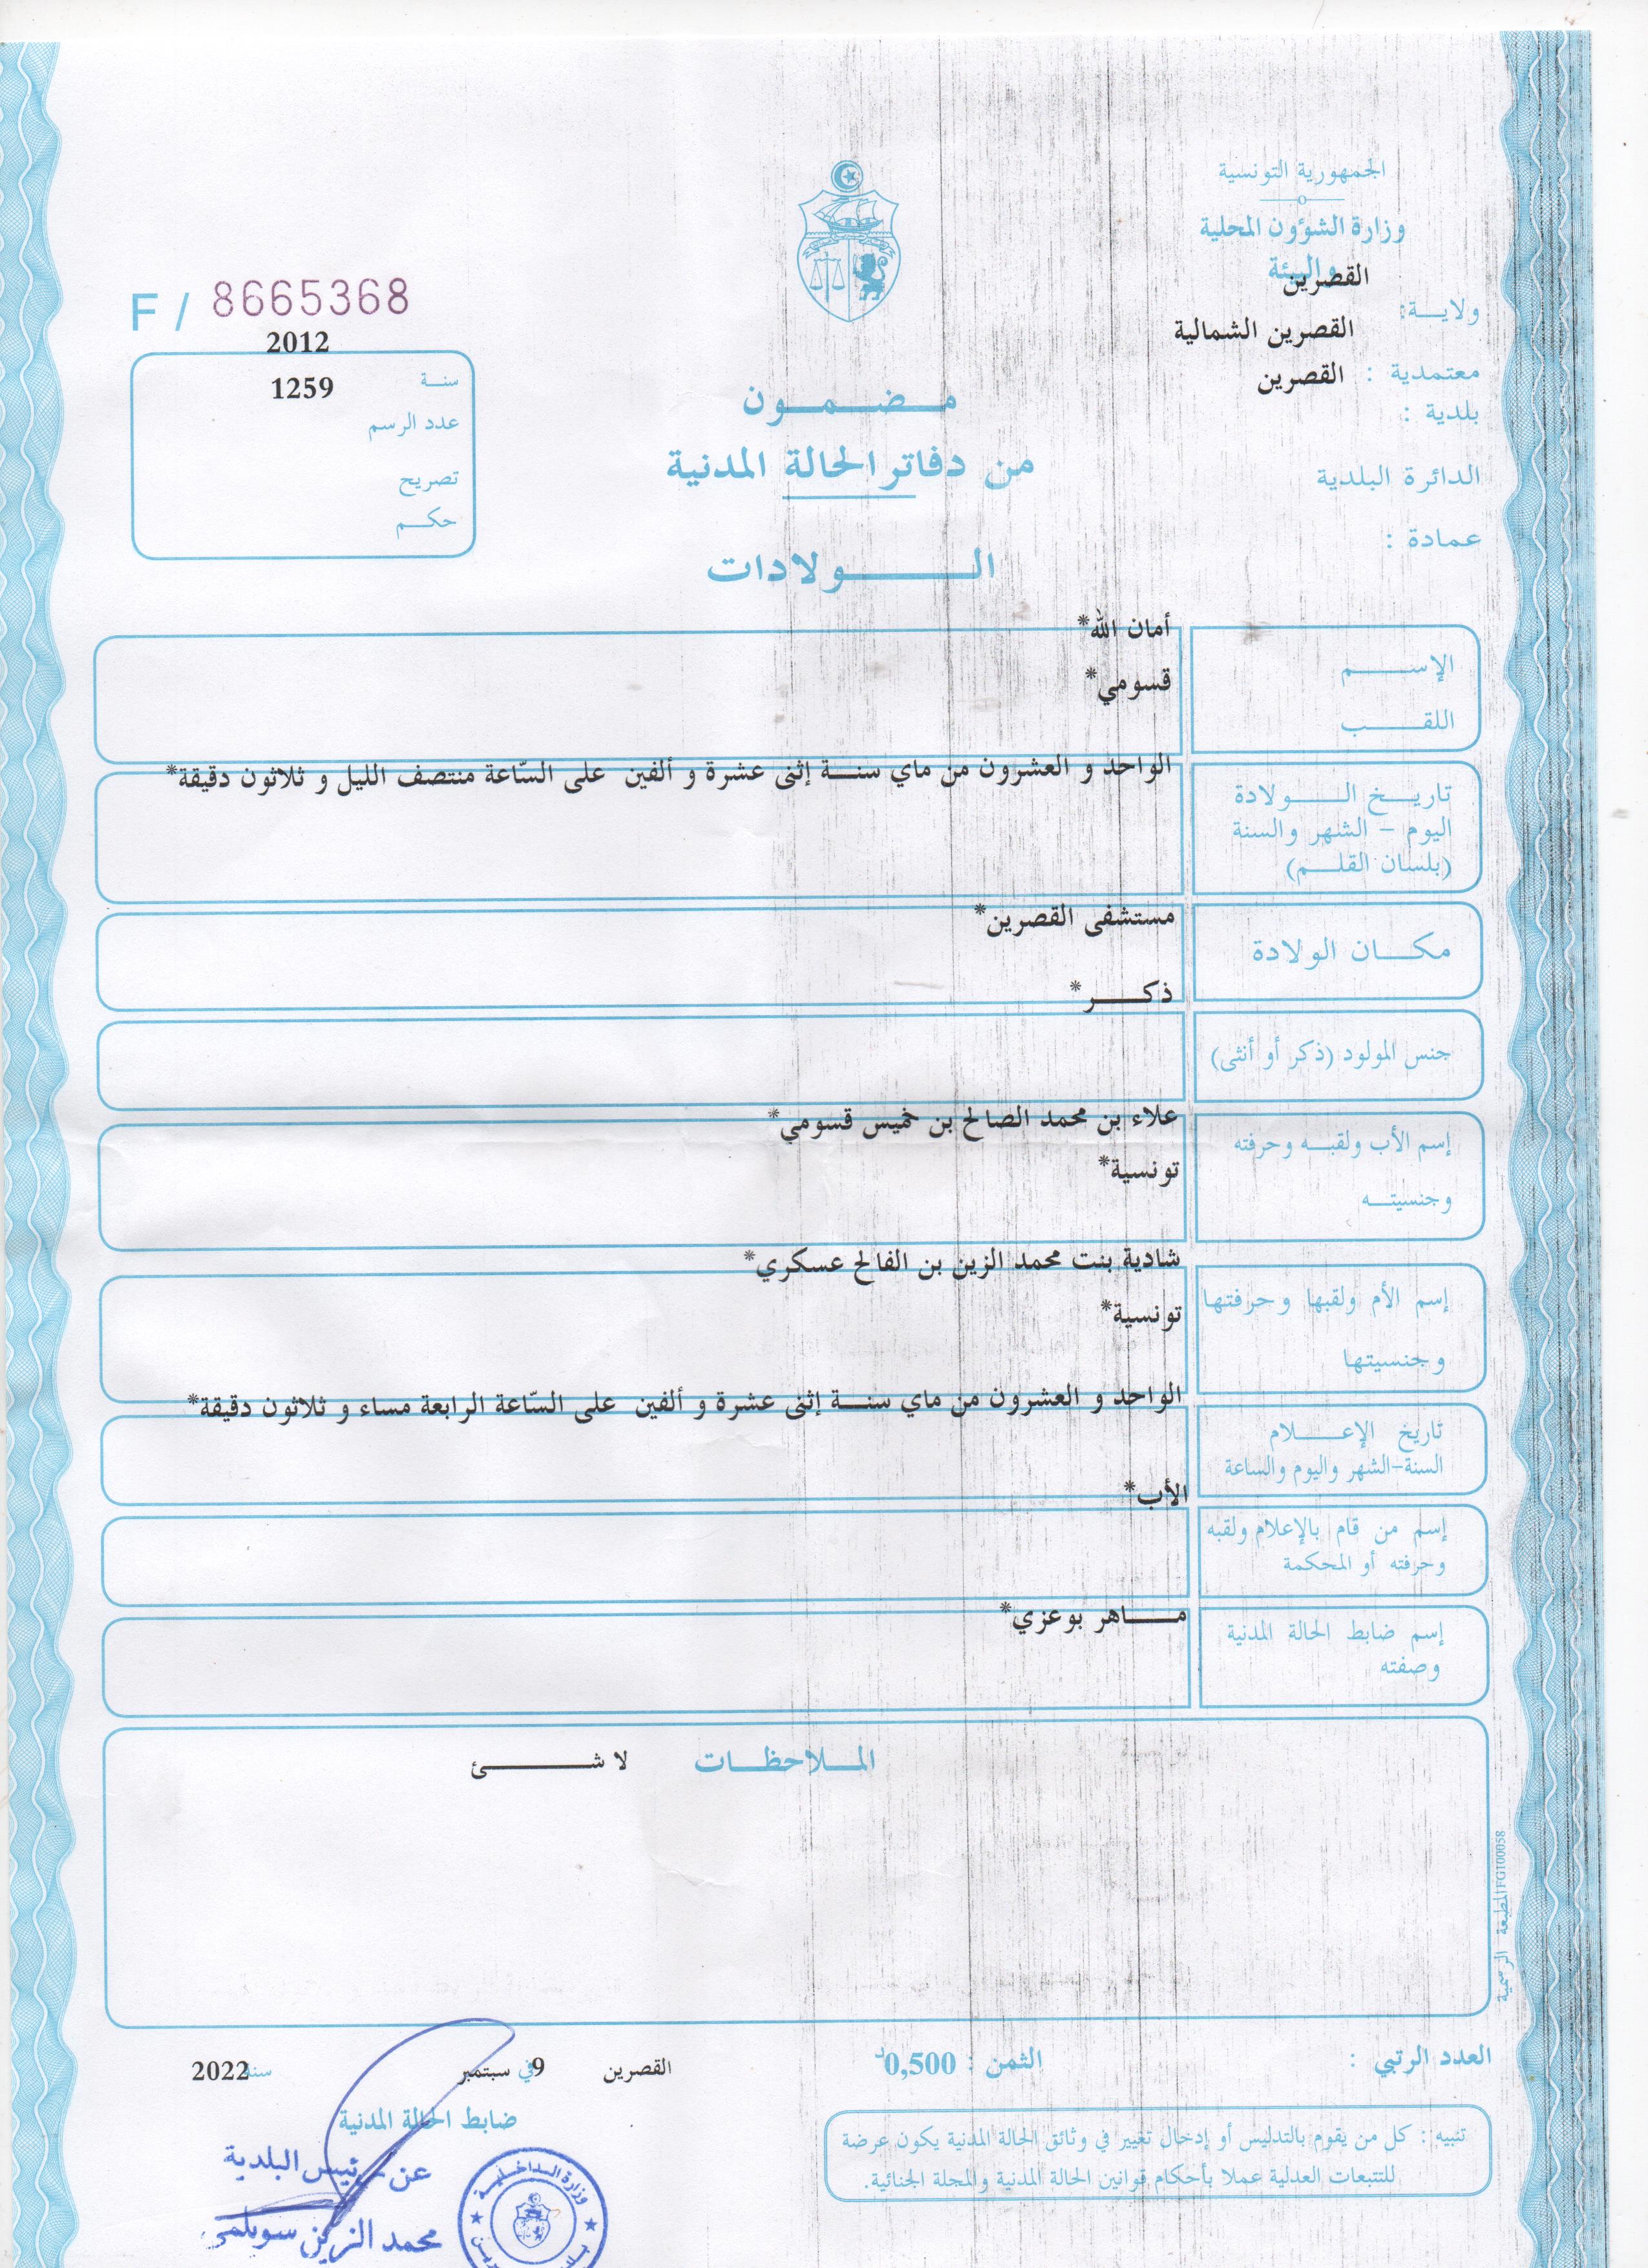 الجمهورية التونسية
وزارة الشؤون المحلية
والبيئة
ولايـــة: القصرين
معتمدية : القصرين الشمالية
بلدية : القصرين
الدائرة البلدية
عمادة :
F / 8665368
سنــة 2012
عدد الرسم 1259
تصريح
حكــم
مـــضـــمـــون
من دفاتر الحالة المدنية
الـــــولادات
الإســـــم أمان الله*
اللقـــب قسومي*
تاريــخ الــــولادة
اليوم – الشهر والسنة
(بلسان القلــم)
الواحد و العشرون من ماي سنـــة إثنى عشرة و ألفين على السّاعة منتصف الليل و ثلاثون دقيقة*
مكـــان الولادة مستشفى القصرين*
جنس المولود (ذكر أو أنثى) ذكـــــر*
إسم الأب ولقبــه وحرفته علاء بن محمد الصالح بن خميس قسومي*
وجنسيتــه تونسية*
إسم الأم ولقبها وحرفتها شادية بنت محمد الزين بن الفالح عسكري*
وجنسيتها تونسية*
تاريخ الإعــــلام
السنة-الشهر واليوم والساعة
الواحد و العشرون من ماي سنـــة إثنى عشرة و ألفين على السّاعة الرابعة مساء و ثلاثون دقيقة*
إسم من قام بالإعلام ولقبه
وحرفته أو المحكمة
الأب*
إسم ضابط الحالة المدنية
وصفته
مـــــاهر بوعزي*
المــلاحظــات لا شـــــــئ
المطبعة الرسمية IFG100058
العدد الرتبي :
الثمن : 0,500د
القصرين في 9 سبتمبر سنة 2022
ضابط الحالة المدنية
عن رئيس البلدية
محمد الزين سويلمي
وزارة الداخلية
تنبيه : كل من يقوم بالتدليس أو إدخال تغيير في وثائق الحالة المدنية يكون عرضة
للتتبعات العدلية عملا بأحكام قوانين الحالة المدنية والمجلة الجنائية.